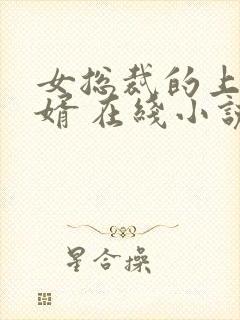 女总裁的上
婿 在线小说
星合操